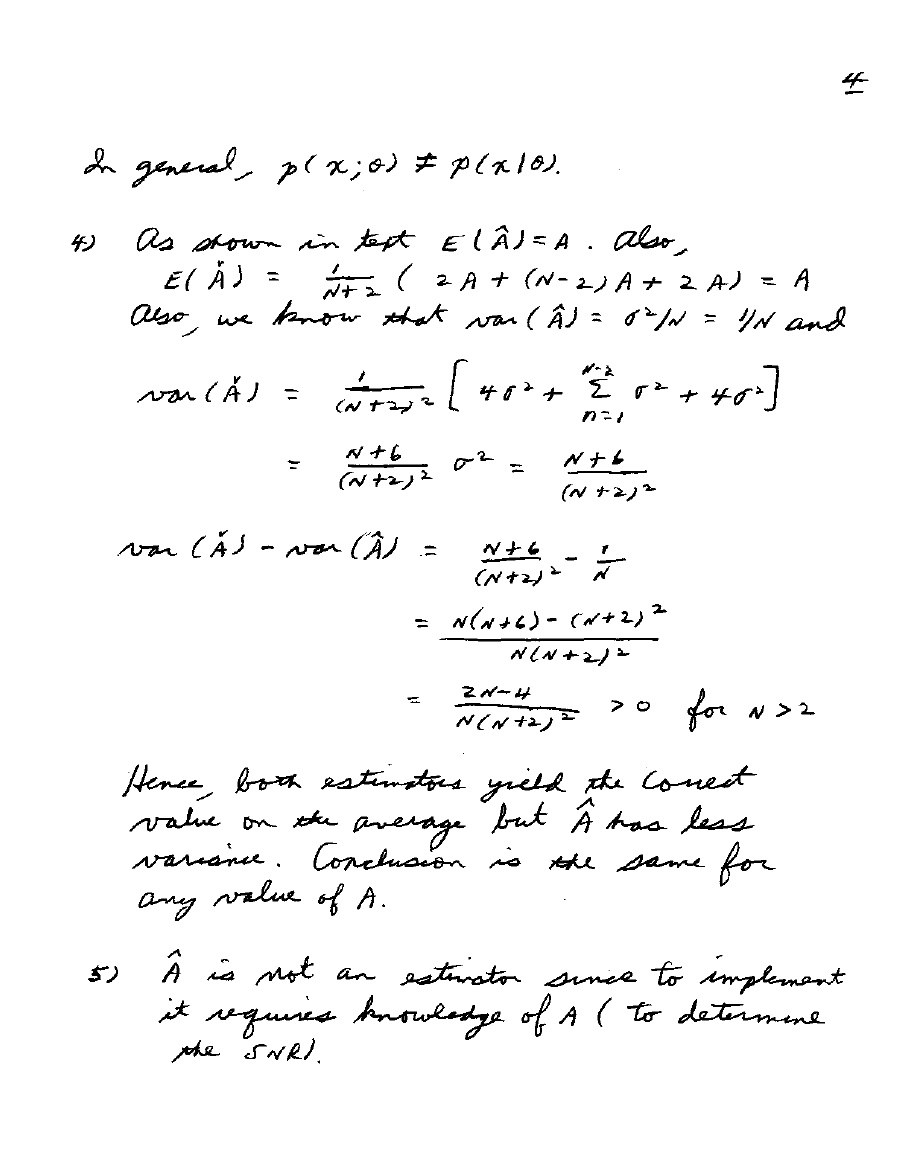 4
In general, p(x;θ) ≠ p(x|θ).
4) As shown in text E(Â)=A. Also,
E(Ǎ) = 1/(N+2) (2A + (N-2)A + 2A) = A
Also, we know that var(Â) = σ²/N = 1/N and
var(Ǎ) = 1/(N+2)² [4σ² + Σ_{n=1}^{N-2} σ² + 4σ²]
= (N+6)/(N+2)² σ² = (N+6)/(N+2)²
var(Ǎ) - var(Â) = (N+6)/(N+2)² - 1/N
= (N(N+6) - (N+2)²)/(N(N+2)²)
= (2N-4)/(N(N+2)²) > 0 for N>2
Hence, both estimators yield the correct
value on the average but Â has less
variance. Conclusion is the same for
any value of A.
5) Â is not an estimator since to implement
it requires knowledge of A (to determine
the SNR).